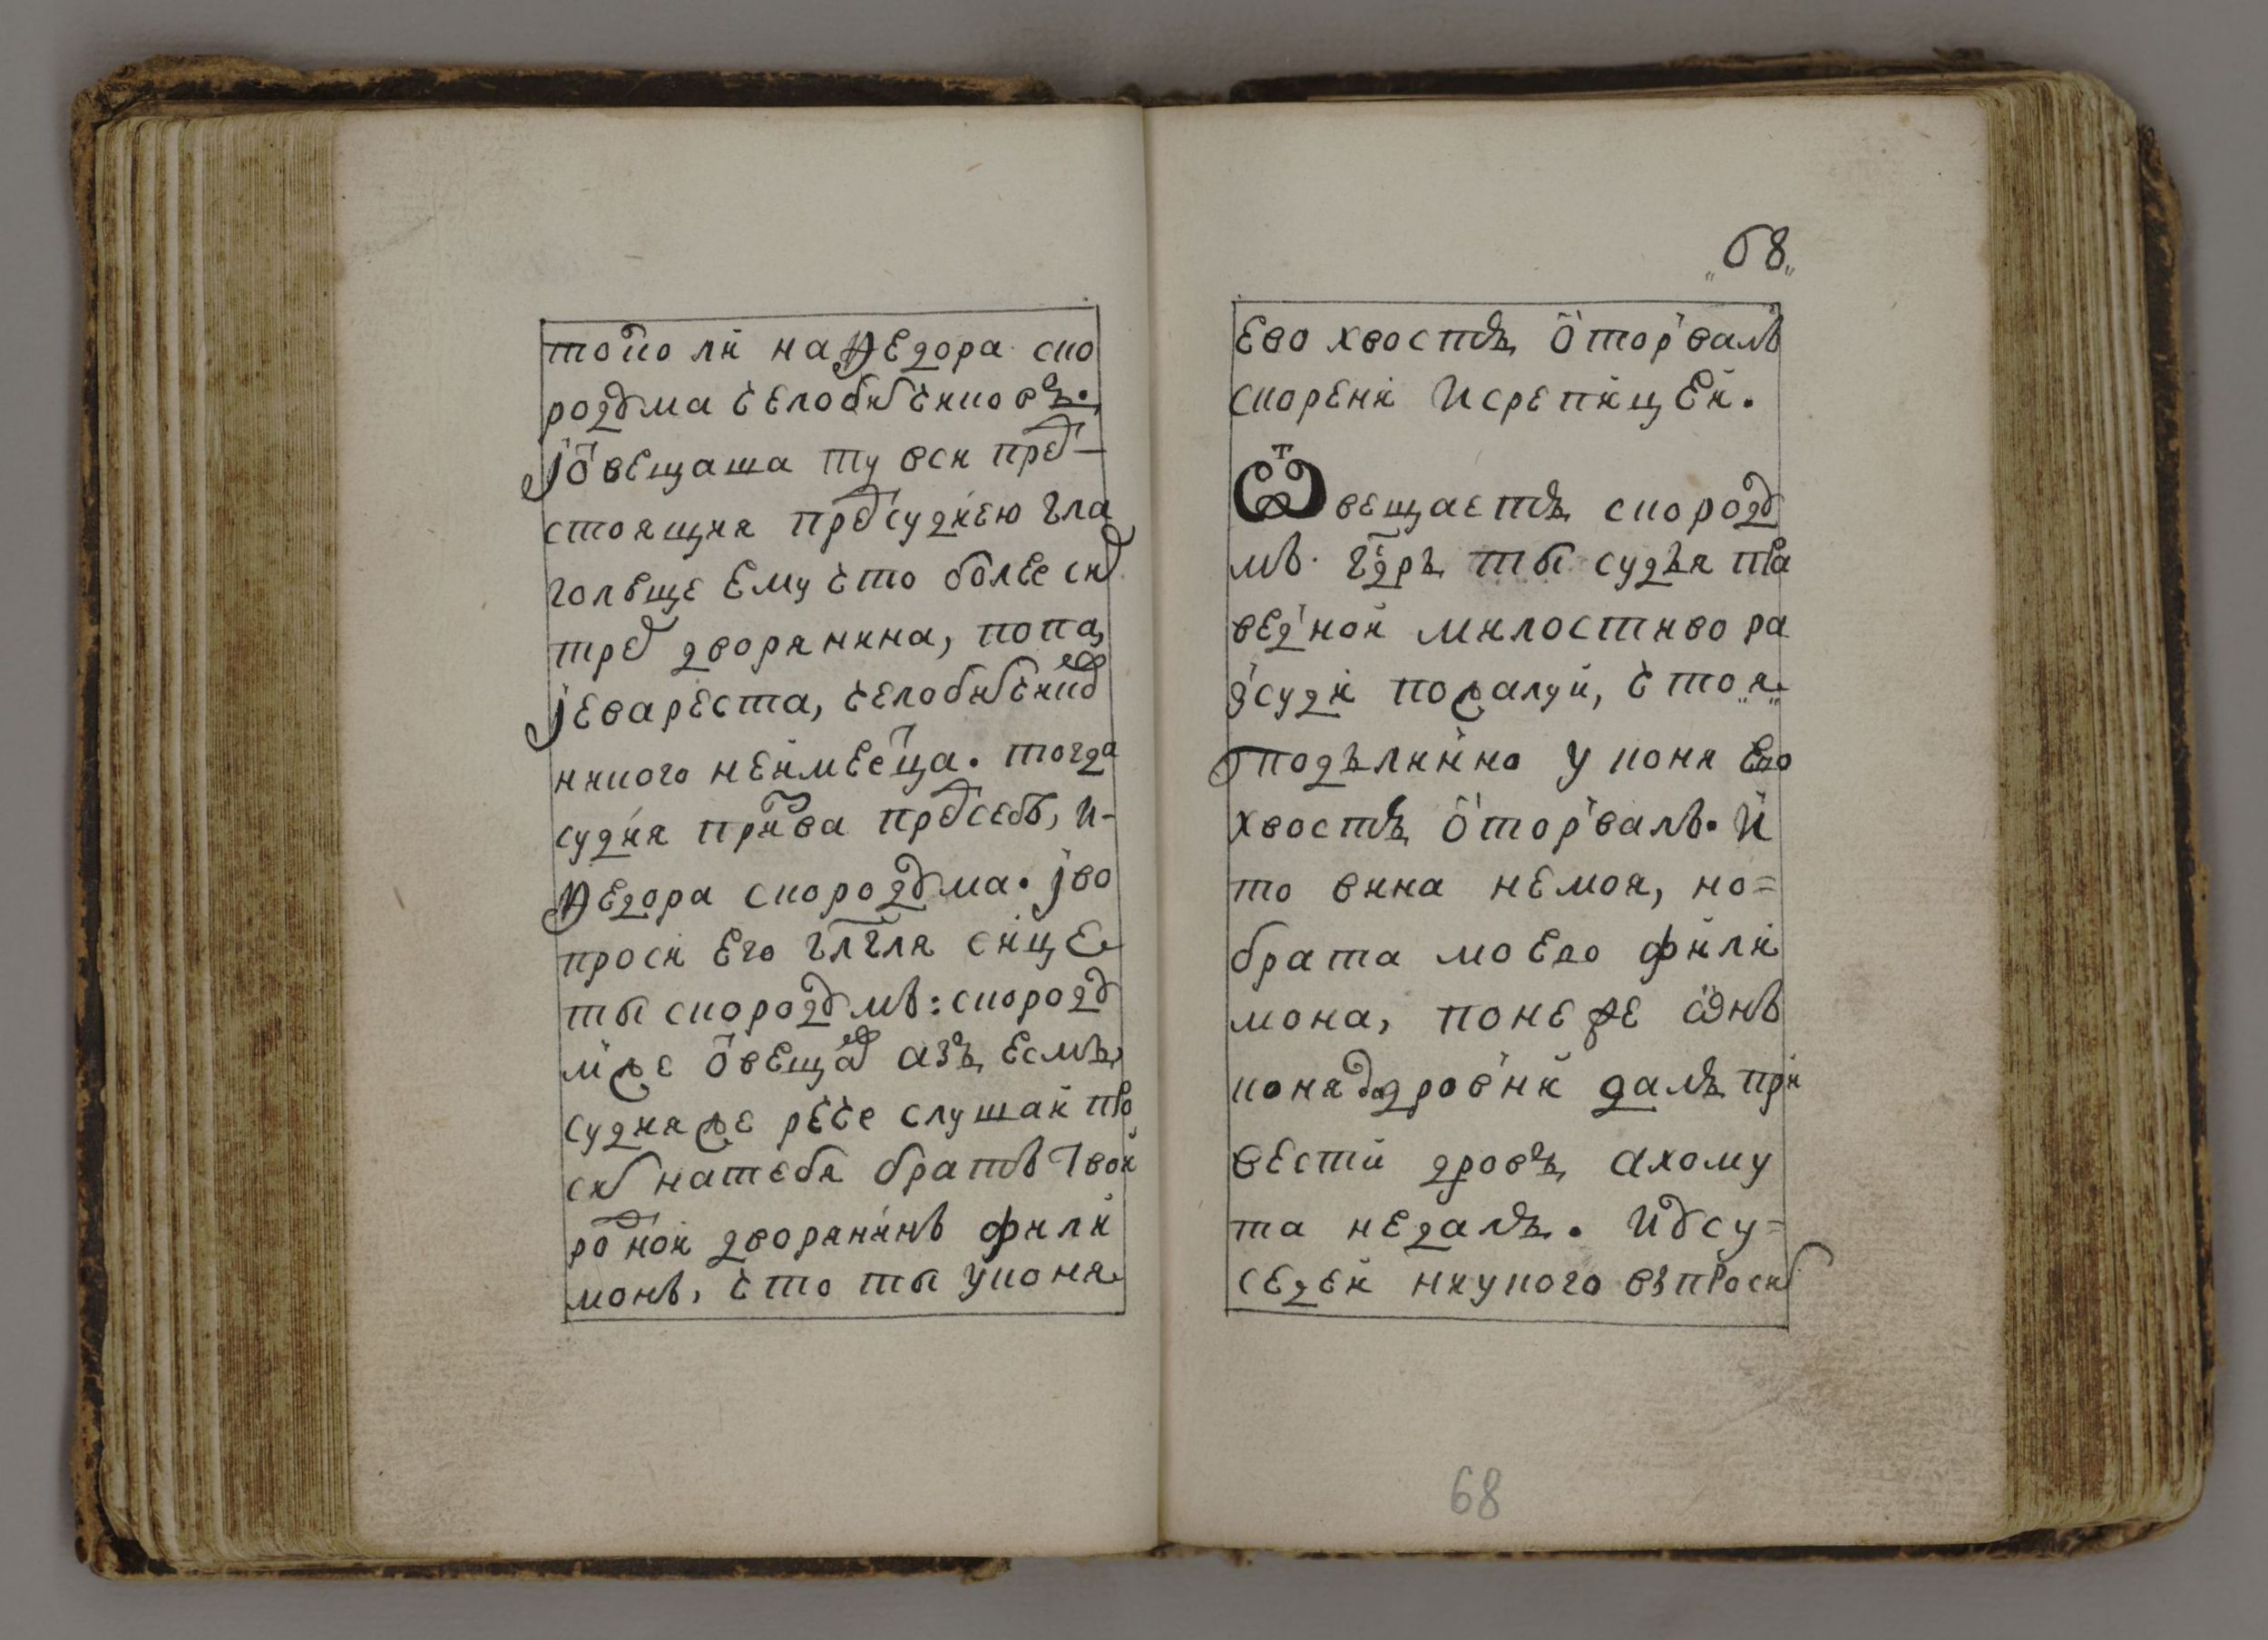 толко ли на Ѳедора ско
роума челобитчиковъ.
ј ѿвещаша ту вси пред
стоящия пред суднею гла
голюще ему что более сих
трех дворянина, попа,
ј евареста, челобитчиков
никого неимеетца. тогда
судия призва пред себя, и
Ѳедора скороума. ј во
проси его глгля сице
ты скороумъ: скороум
же ѿвеща азъ есмь,
судия же рече слушай про
сит на тебя братъ твой
родной дворянинъ фили
монъ, что ты у коня
68
ево хвостъ ѿторвалъ
с корени и с репицей.
Ѿвещаетъ скороу
мъ. гдрь ты судья пра
ведной милостиво ра
зсуди пожалуй, что я
подълинно у коня его
хвостъ ѿторвалъ. и
то вина не моя, но
брата моего фили
мона, понеже онъ
коня до дровни далъ при
вести дровъ а хому
та не далъ. и у су
седей ни у кого въпросит
68